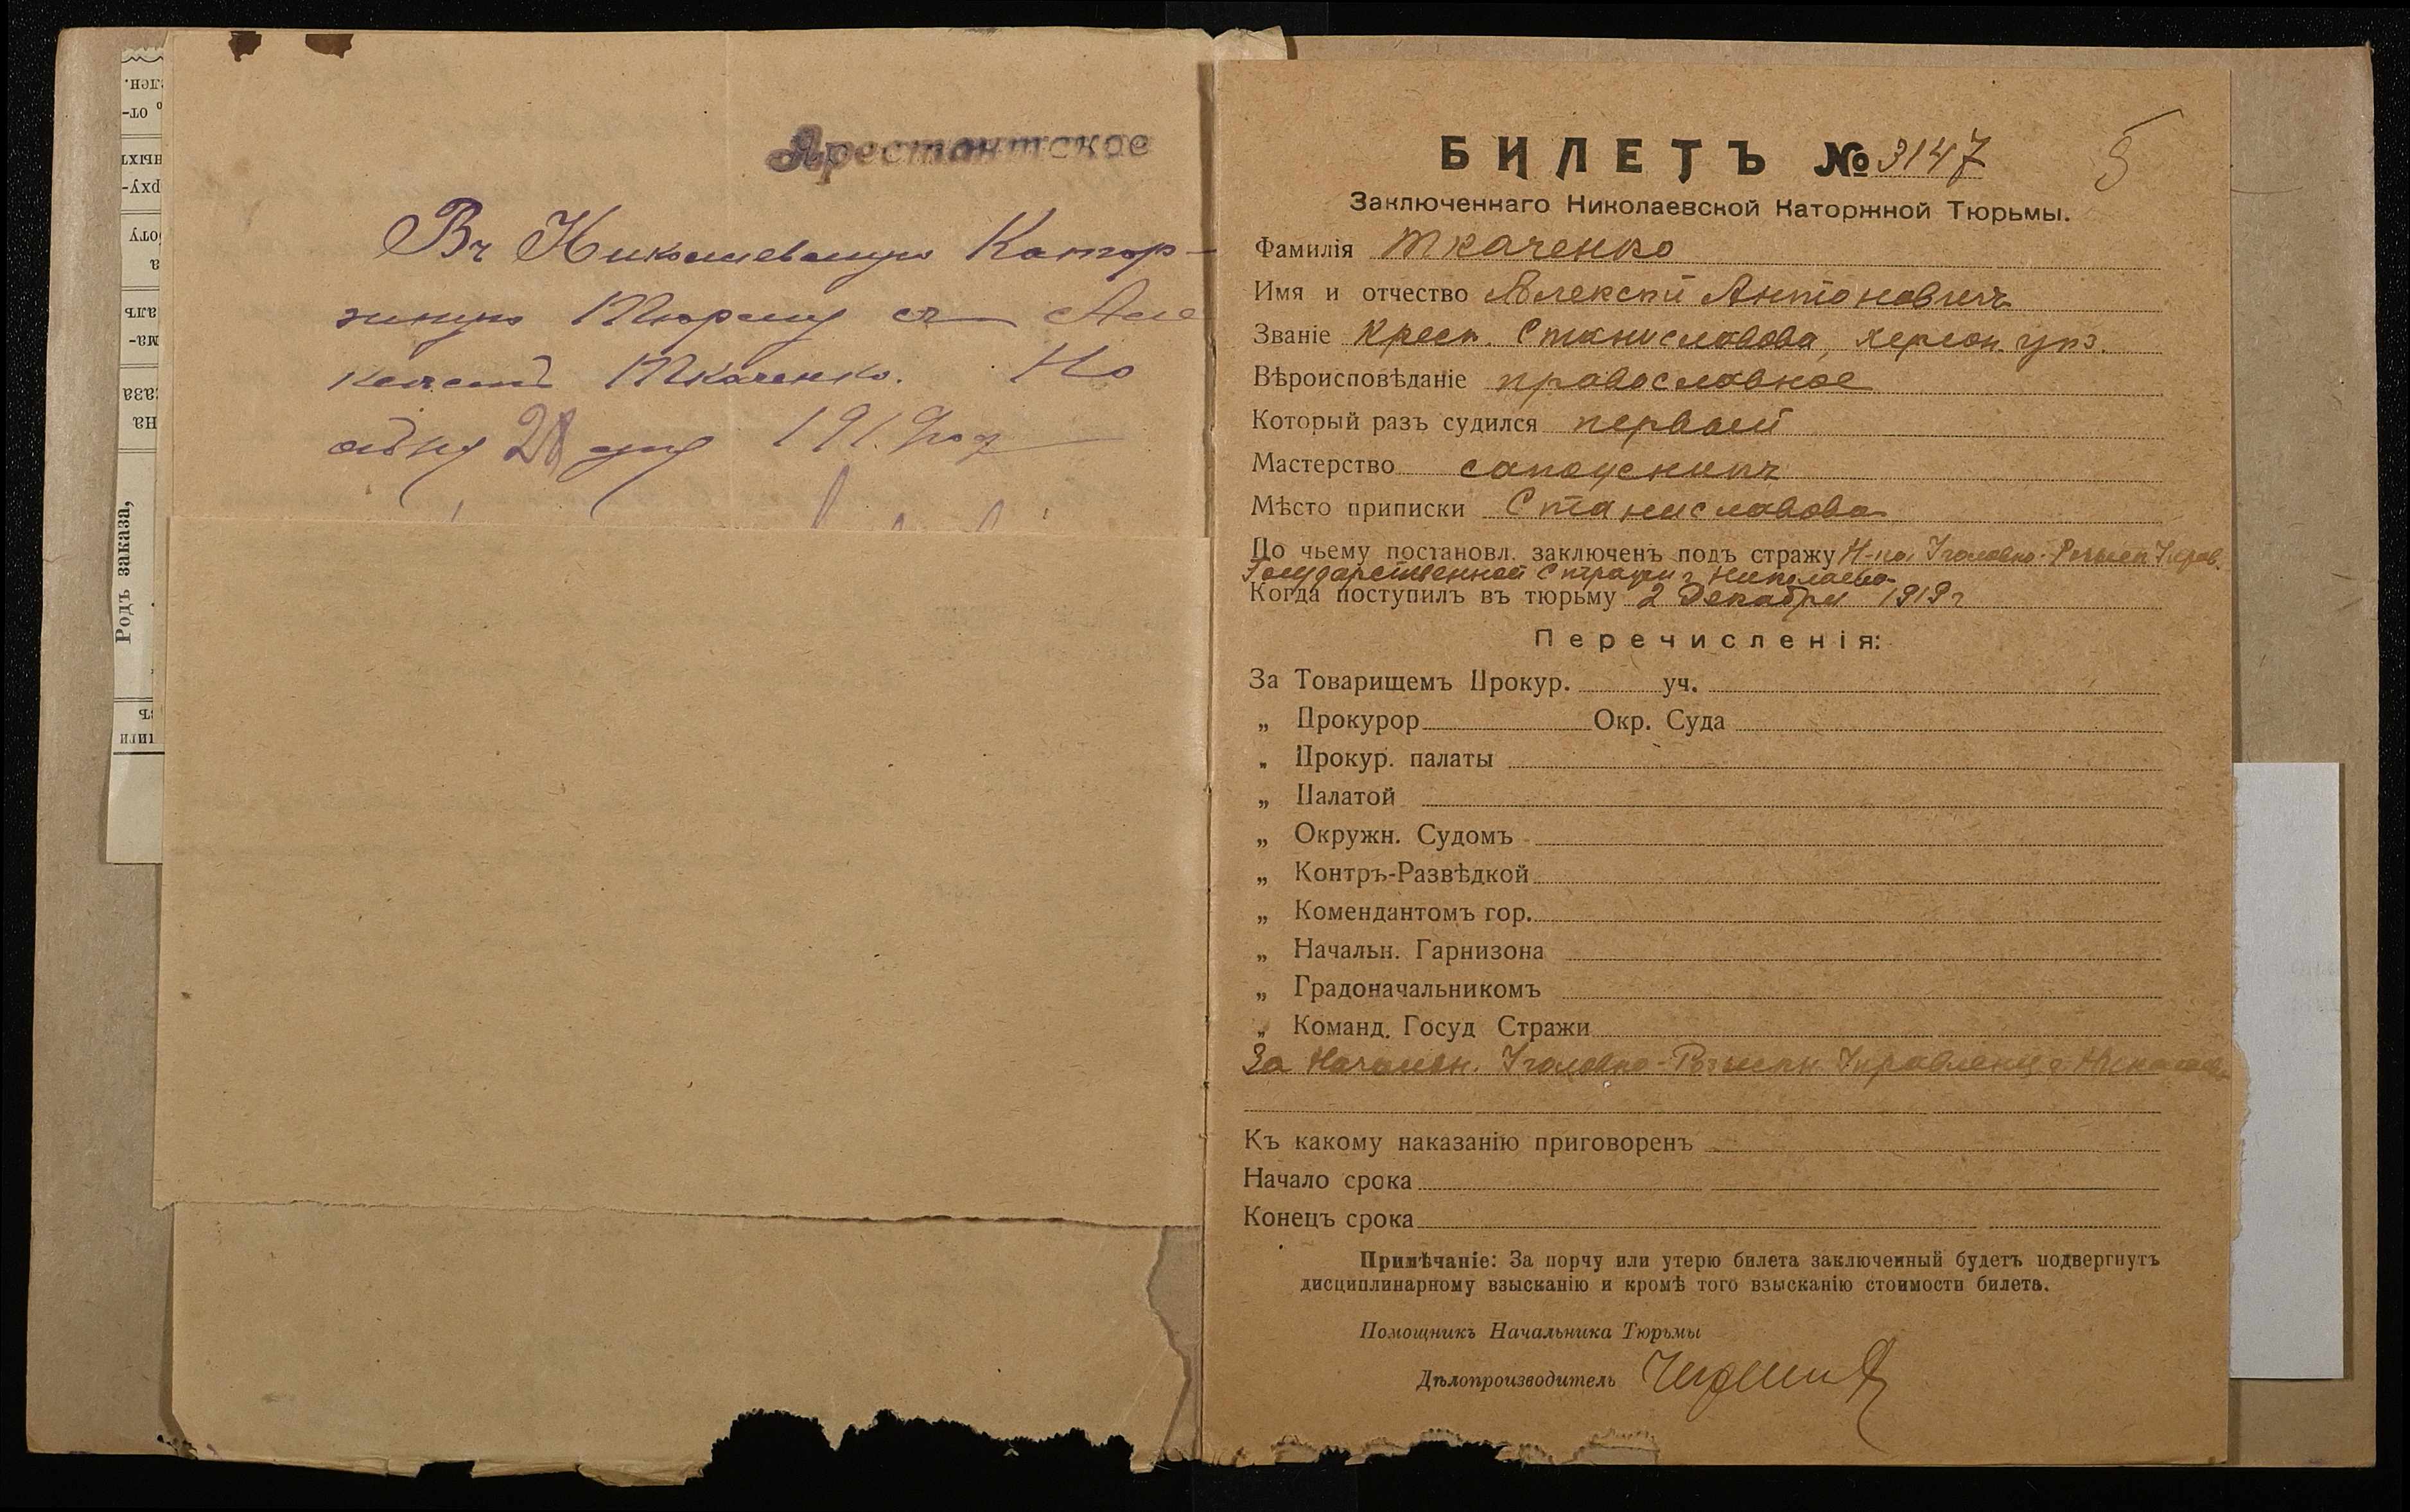 Арестантское
Въ Николаевскую Катор-
жную Тюрьму съ Але
ксеемъ Ткаченко. Но
ября 28 дня 1919 года
Родъ заказа,
БИЛЕТЪ № 3147
5
Заключеннаго Николаевской Каторжной Тюрьмы.
Фамилія Ткаченко
Имя и отчество Алексѣй Антоновичъ
Званіе Крест. Станиславова, Херсон. уѣз.
Вѣроисповѣданіе православное
Который разъ судился первый
Мастерство сапожникъ
Мѣсто приписки Станиславова
По чьему постановл. заключенъ подъ стражу Н-ка Уголовно-Розыск. Управ.
Государственной Стражи г. Николаева
Когда поступилъ въ тюрьму 2 Декабря 1919 г
Перечисленія:
За Товарищемъ Прокур. уч.
„ Прокурор Окр. Суда
„ Прокур. палаты
„ Палатой
„ Окружн. Судомъ
„ Контръ-Развѣдкой
„ Комендантомъ гор.
„ Начальн. Гарнизона
„ Градоначальникомъ
„ Команд. Госуд Стражи
За Начальн. Уголовно-Розыскн. Управленія г. Николаева
Къ какому наказанію приговоренъ
Начало срока
Конецъ срока
Примѣчаніе: За порчу или утерю билета заключенный будетъ подвергнутъ
дисциплинарному взысканію и кромѣ того взысканію стоимости билета.
Помощникъ Начальника Тюрьмы
Дѣлопроизводитель